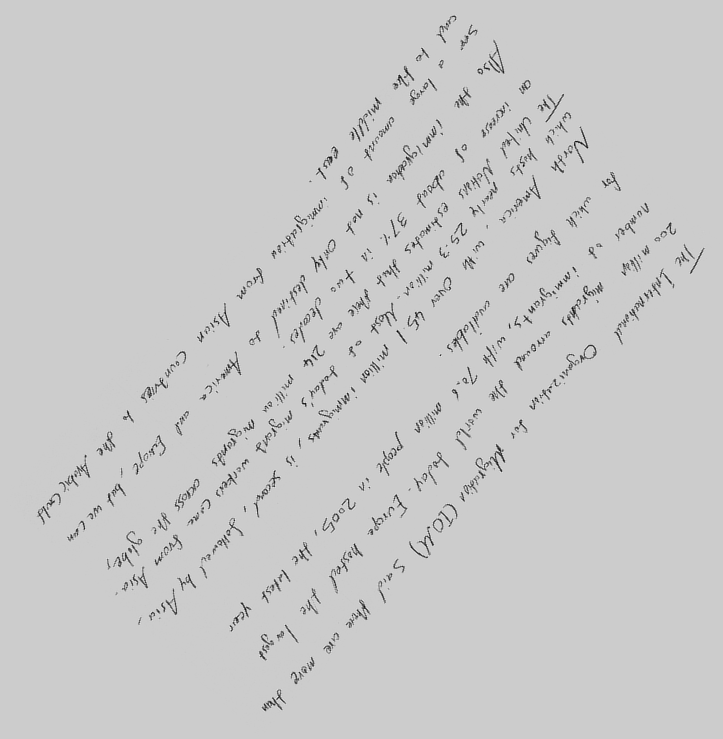 The International Organization for Migration (IOM) said there are more than
200 million migrants around the world today. Europe hosted the largest
number of immigrants, with 70.6 million people in 2005, the latest year
for which figures are available.
North America, with over 45.1 million immigrants, is second, followed by Asia,
which hosts nearly 25.3 million. Most of today's migrant workers come from Asia.
The United Nations estimates that there are 214 million migrants across the globe,
an increase of about 37% in two decades.
Also the immigration is not only destined to America and Europe, but we can
see a large amount of immigration from Asian Countries to the Arabic Gulf
and to the middle east.